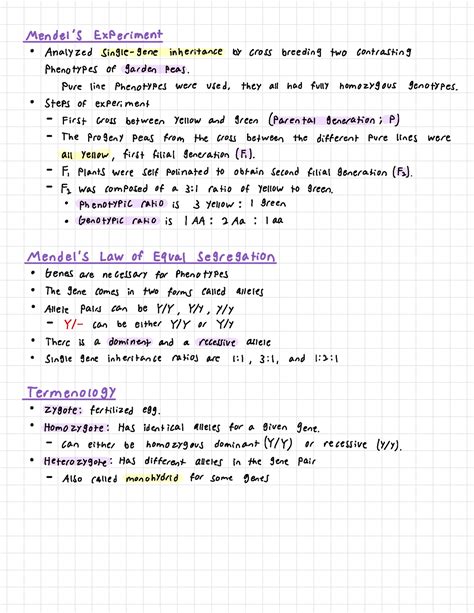 Mendel's Experiment
• Analyzed single-gene inheritance by cross breeding two contrasting
phenotypes of garden peas.
Pure line phenotypes were used, they all had fully homozygous genotypes.
• Steps of experiment
– First cross between yellow and green (parental generation ; P)
– The progeny peas from the cross between the different pure lines were
all yellow, first filial generation (F₁).
– F₁ plants were self polinated to obtain second filial generation (F₂).
– F₂ was composed of a 3:1 ratio of yellow to green.
• Phenotypic ratio is 3 yellow : 1 green
• Genotypic ratio is 1 AA : 2 Aa : 1 aa
Mendel's Law of Equal Segregation
• Genes are necessary for phenotypes
• The gene comes in two forms called alleles
• Allele pairs can be Y/Y, Y/y, y/y
– Y/– can be either Y/Y or Y/y
• There is a dominant and a recessive allele
• Single gene inheritance ratios are 1:1, 3:1, and 1:2:1
Termenology
• Zygote: fertilized egg.
• Homozygote: Has identical alleles for a given gene.
– Can either be homozygous dominant (Y/Y) or recessive (y/y).
• Heterozygote: Has different alleles in the gene pair
– Also called monohydrid for some genes